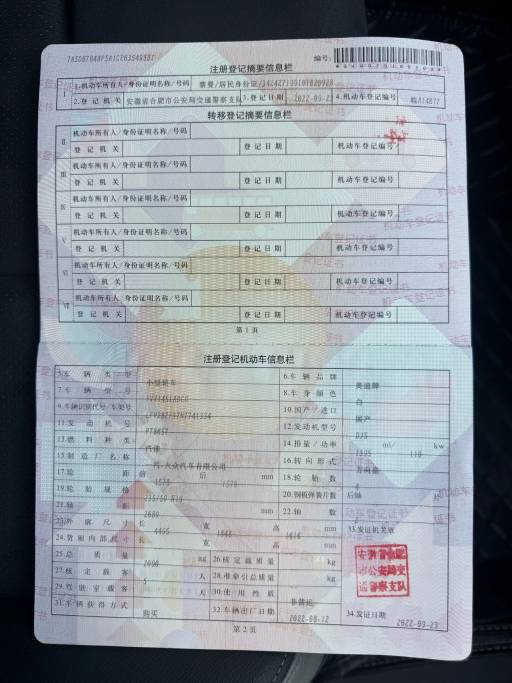 编号:
注册登记摘要信息栏
I 1.机动车所有人/身份证明名称/号码 蔡曼/居民身份证/
2.登记机关 安徽省合肥市公安局交通警察支队 3.登记日期 2022-09-23 4.机动车登记编号 皖A14B77
转移登记摘要信息栏
II 机动车所有人/身份证明名称/号码
登记机关 登记日期 机动车登记编号
III 机动车所有人/身份证明名称/号码
登记机关 登记日期 机动车登记编号
IV 机动车所有人/身份证明名称/号码
登记机关 登记日期 机动车登记编号
V 机动车所有人/身份证明名称/号码
登记机关 登记日期 机动车登记编号
VI 机动车所有人/身份证明名称/号码
登记机关 登记日期 机动车登记编号
VII 机动车所有人/身份证明名称/号码
登记机关 登记日期 机动车登记编号
第1页
注册登记机动车信息栏
5.车辆类型 小型轿车 6.车辆品牌 奥迪牌
7.车辆型号 8.车身颜色 白
9.车辆识别代号/车架号 10.国产/进口 国产
11.发动机号 12.发动机型号
13.燃料种类 汽油 14.排量/功率 1395 ml/ 110 kw
15.制造厂名称 一汽-大众汽车有限公司 16.转向形式 方向盘
17.轮距 前 1578 后 1579 mm 18.轮胎数 4
19.轮胎规格 235/50 R19 20.钢板弹簧片数 后轴 片
21.轴距 2680 mm 22.轴数
23.外廓尺寸 长 4495 宽 1848 高 1616 mm 33.发证机关章
24.货厢内部尺寸 长 宽 高 mm
25.总质量 kg 26.核定载质量 kg
27.核定载客 5 人 28.准牵引总质量 kg
29.驾驶室载客 人 30.使用性质 非营运
31.车辆获得方式 购买 32.车辆出厂日期 2022-08-12 34.发证日期 2022-09-23
安徽省合肥
市公安局交
通警察支队
第2页